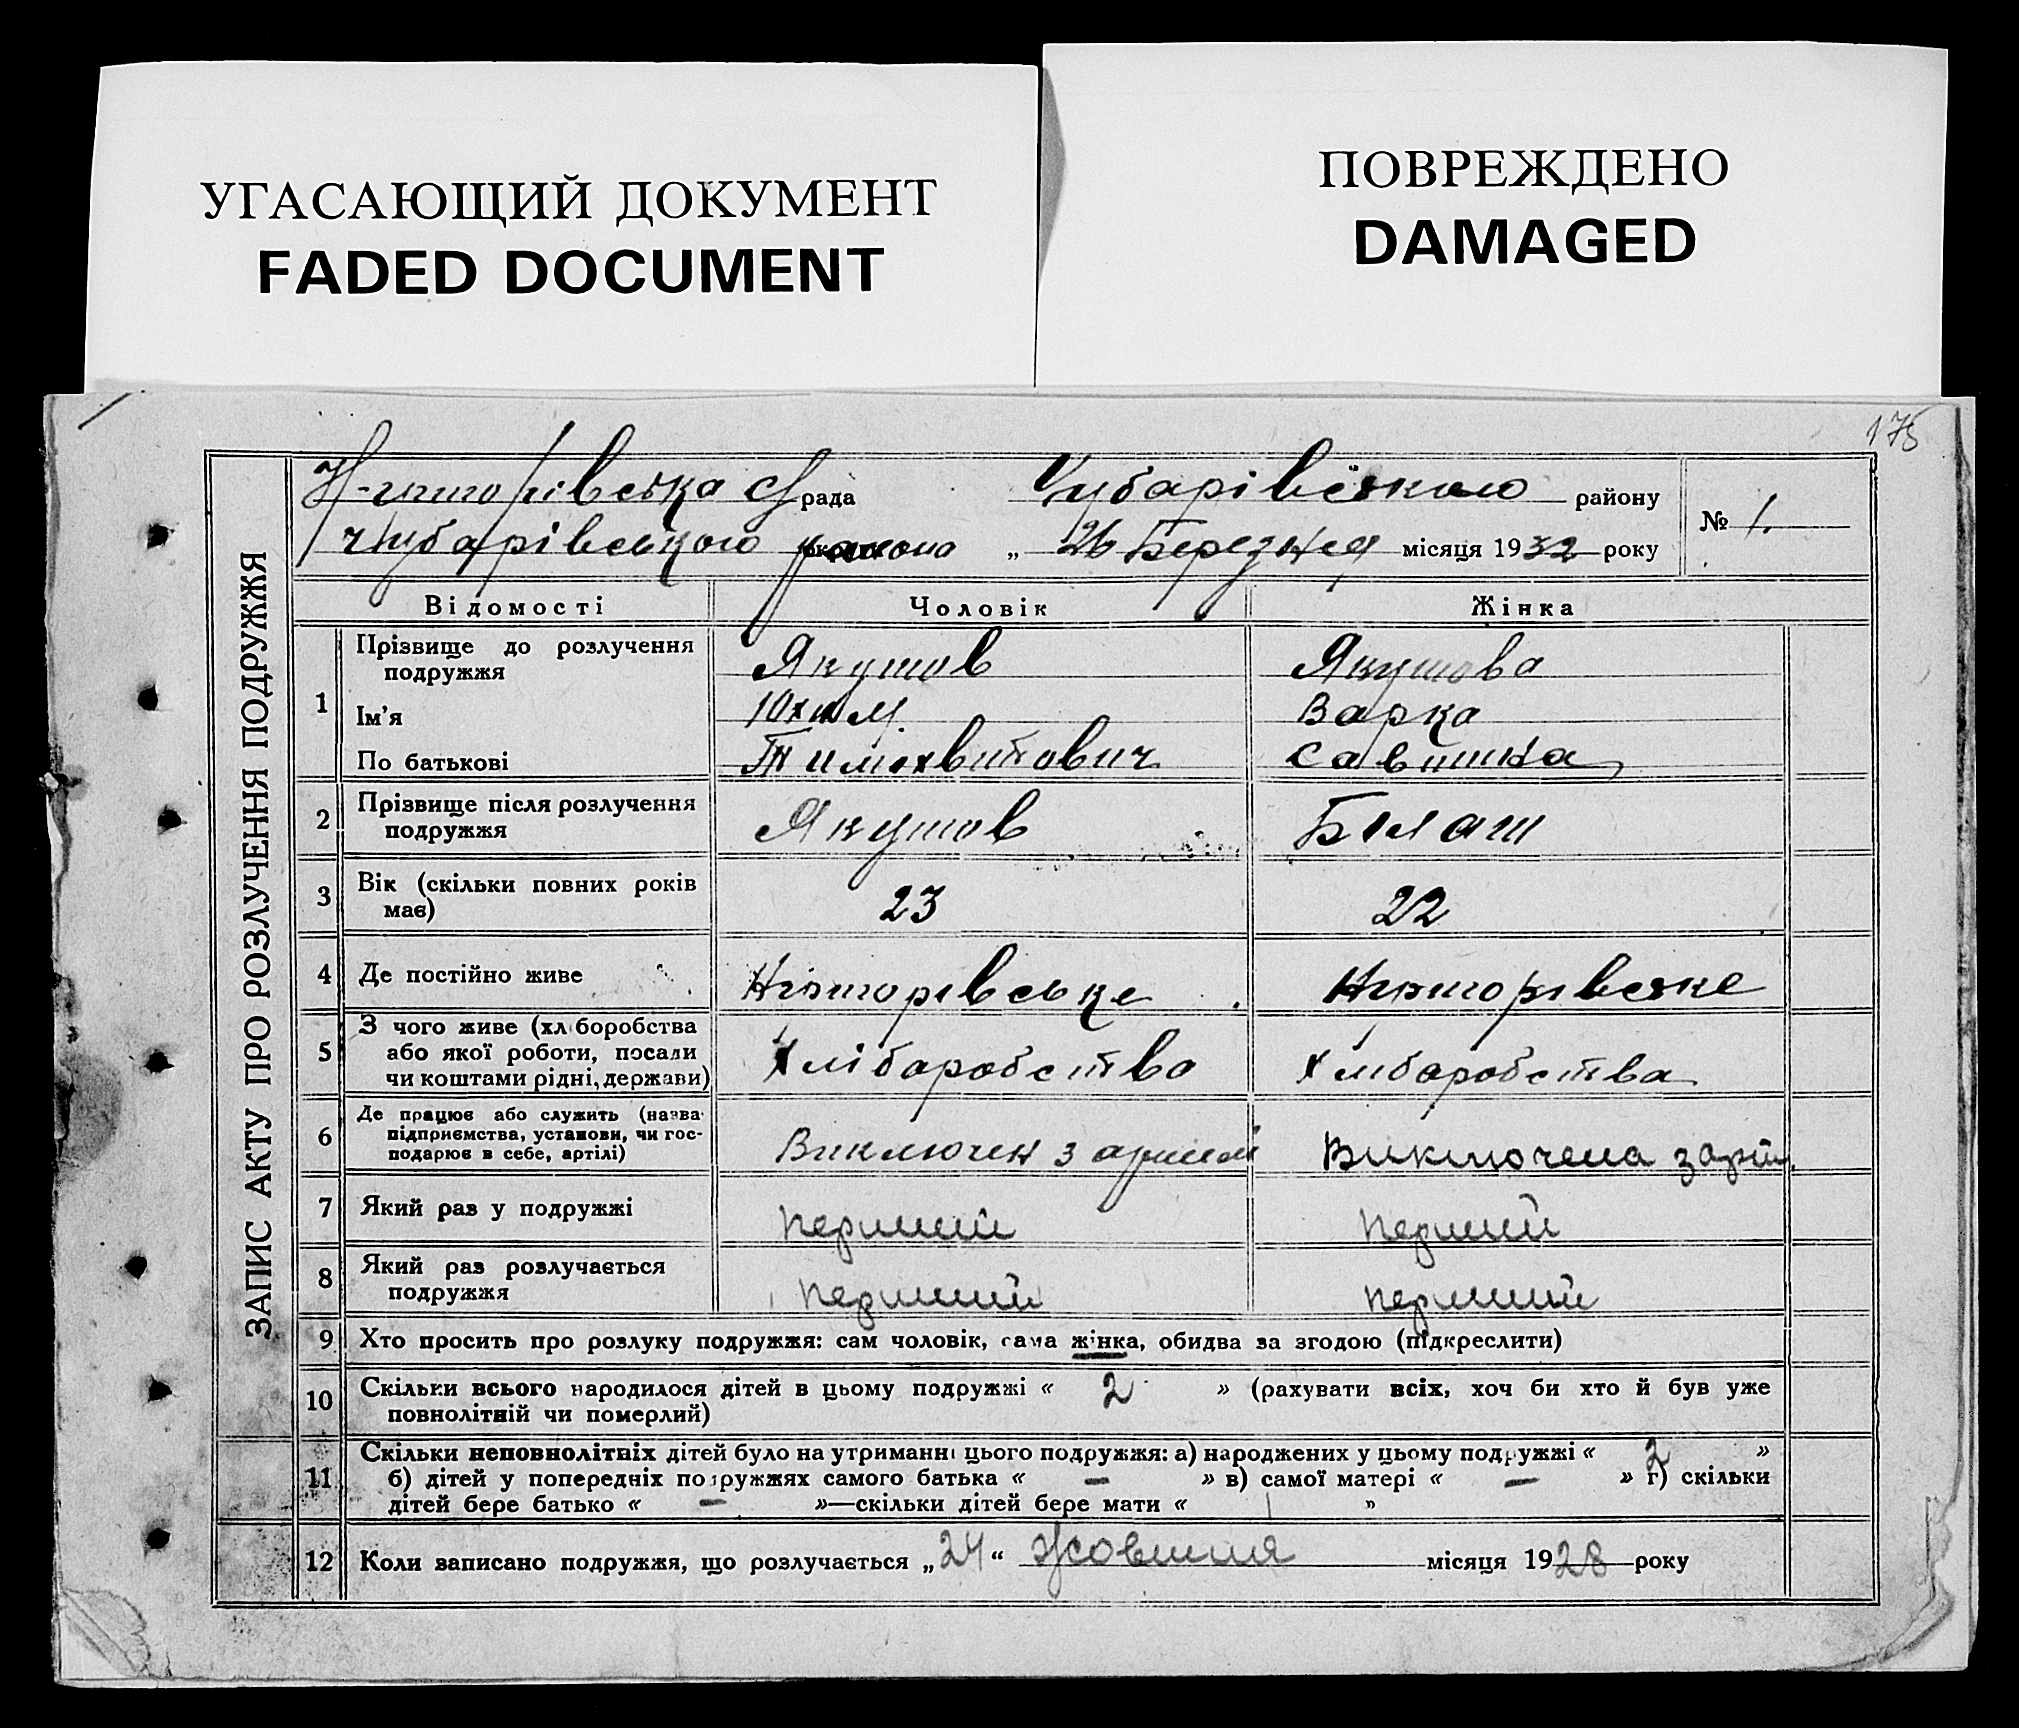 УГАСАЮЩИЙ ДОКУМЕНТ
FADED DOCUMENT
ПОВРЕЖДЕНО
DAMAGED
175
ЗАПИС АКТУ ПРО РОЗЛУЧЕННЯ ПОДРУЖЖЯ
рада Чубарівського району
Чубарівського района „ 26 Березня місяця 1932 року
№ 1.
Відомості Чоловік Жінка
1 Прізвище до розлучення подружжя Якушов Якушова
Ім'я Юхим Варка
По батькові Тиміхвитович Савишна
2 Прізвище після розлучення подружжя Якушов Білаш
3 Вік (скільки повних років має) 23 22
4 Де постійно живе
5 З чого живе (хліборобства або якої роботи, посади чи коштами рідні, держави) Хлібаробство Хлібаробства
6 Де працює або служить (назва підприємства, установи, чи господарює в себе, артілі) Виключен з Виключена з
7 Який раз у подружжі перший перший
8 Який раз розлучається подружжя перший перший
9 Хто просить про розлуку подружжя: сам чоловік, сама жінка, обидва за згодою (підкреслити)
10 Скільки всього народилося дітей в цьому подружжі « 2 » (рахувати всіх, хоч би хто й був уже
повнолітній чи померлий)
11 Скільки неповнолітніх дітей було на утриманні цього подружжя: а) народжених у цьому подружжі « 2 »
б) дітей у попередніх подружжях самого батька « – » в) самої матері « – » г) скільки
дітей бере батько « – »—скільки дітей бере мати « »
12 Коли записано подружжя, що розлучається „24“ Жовтня місяця 1928 року